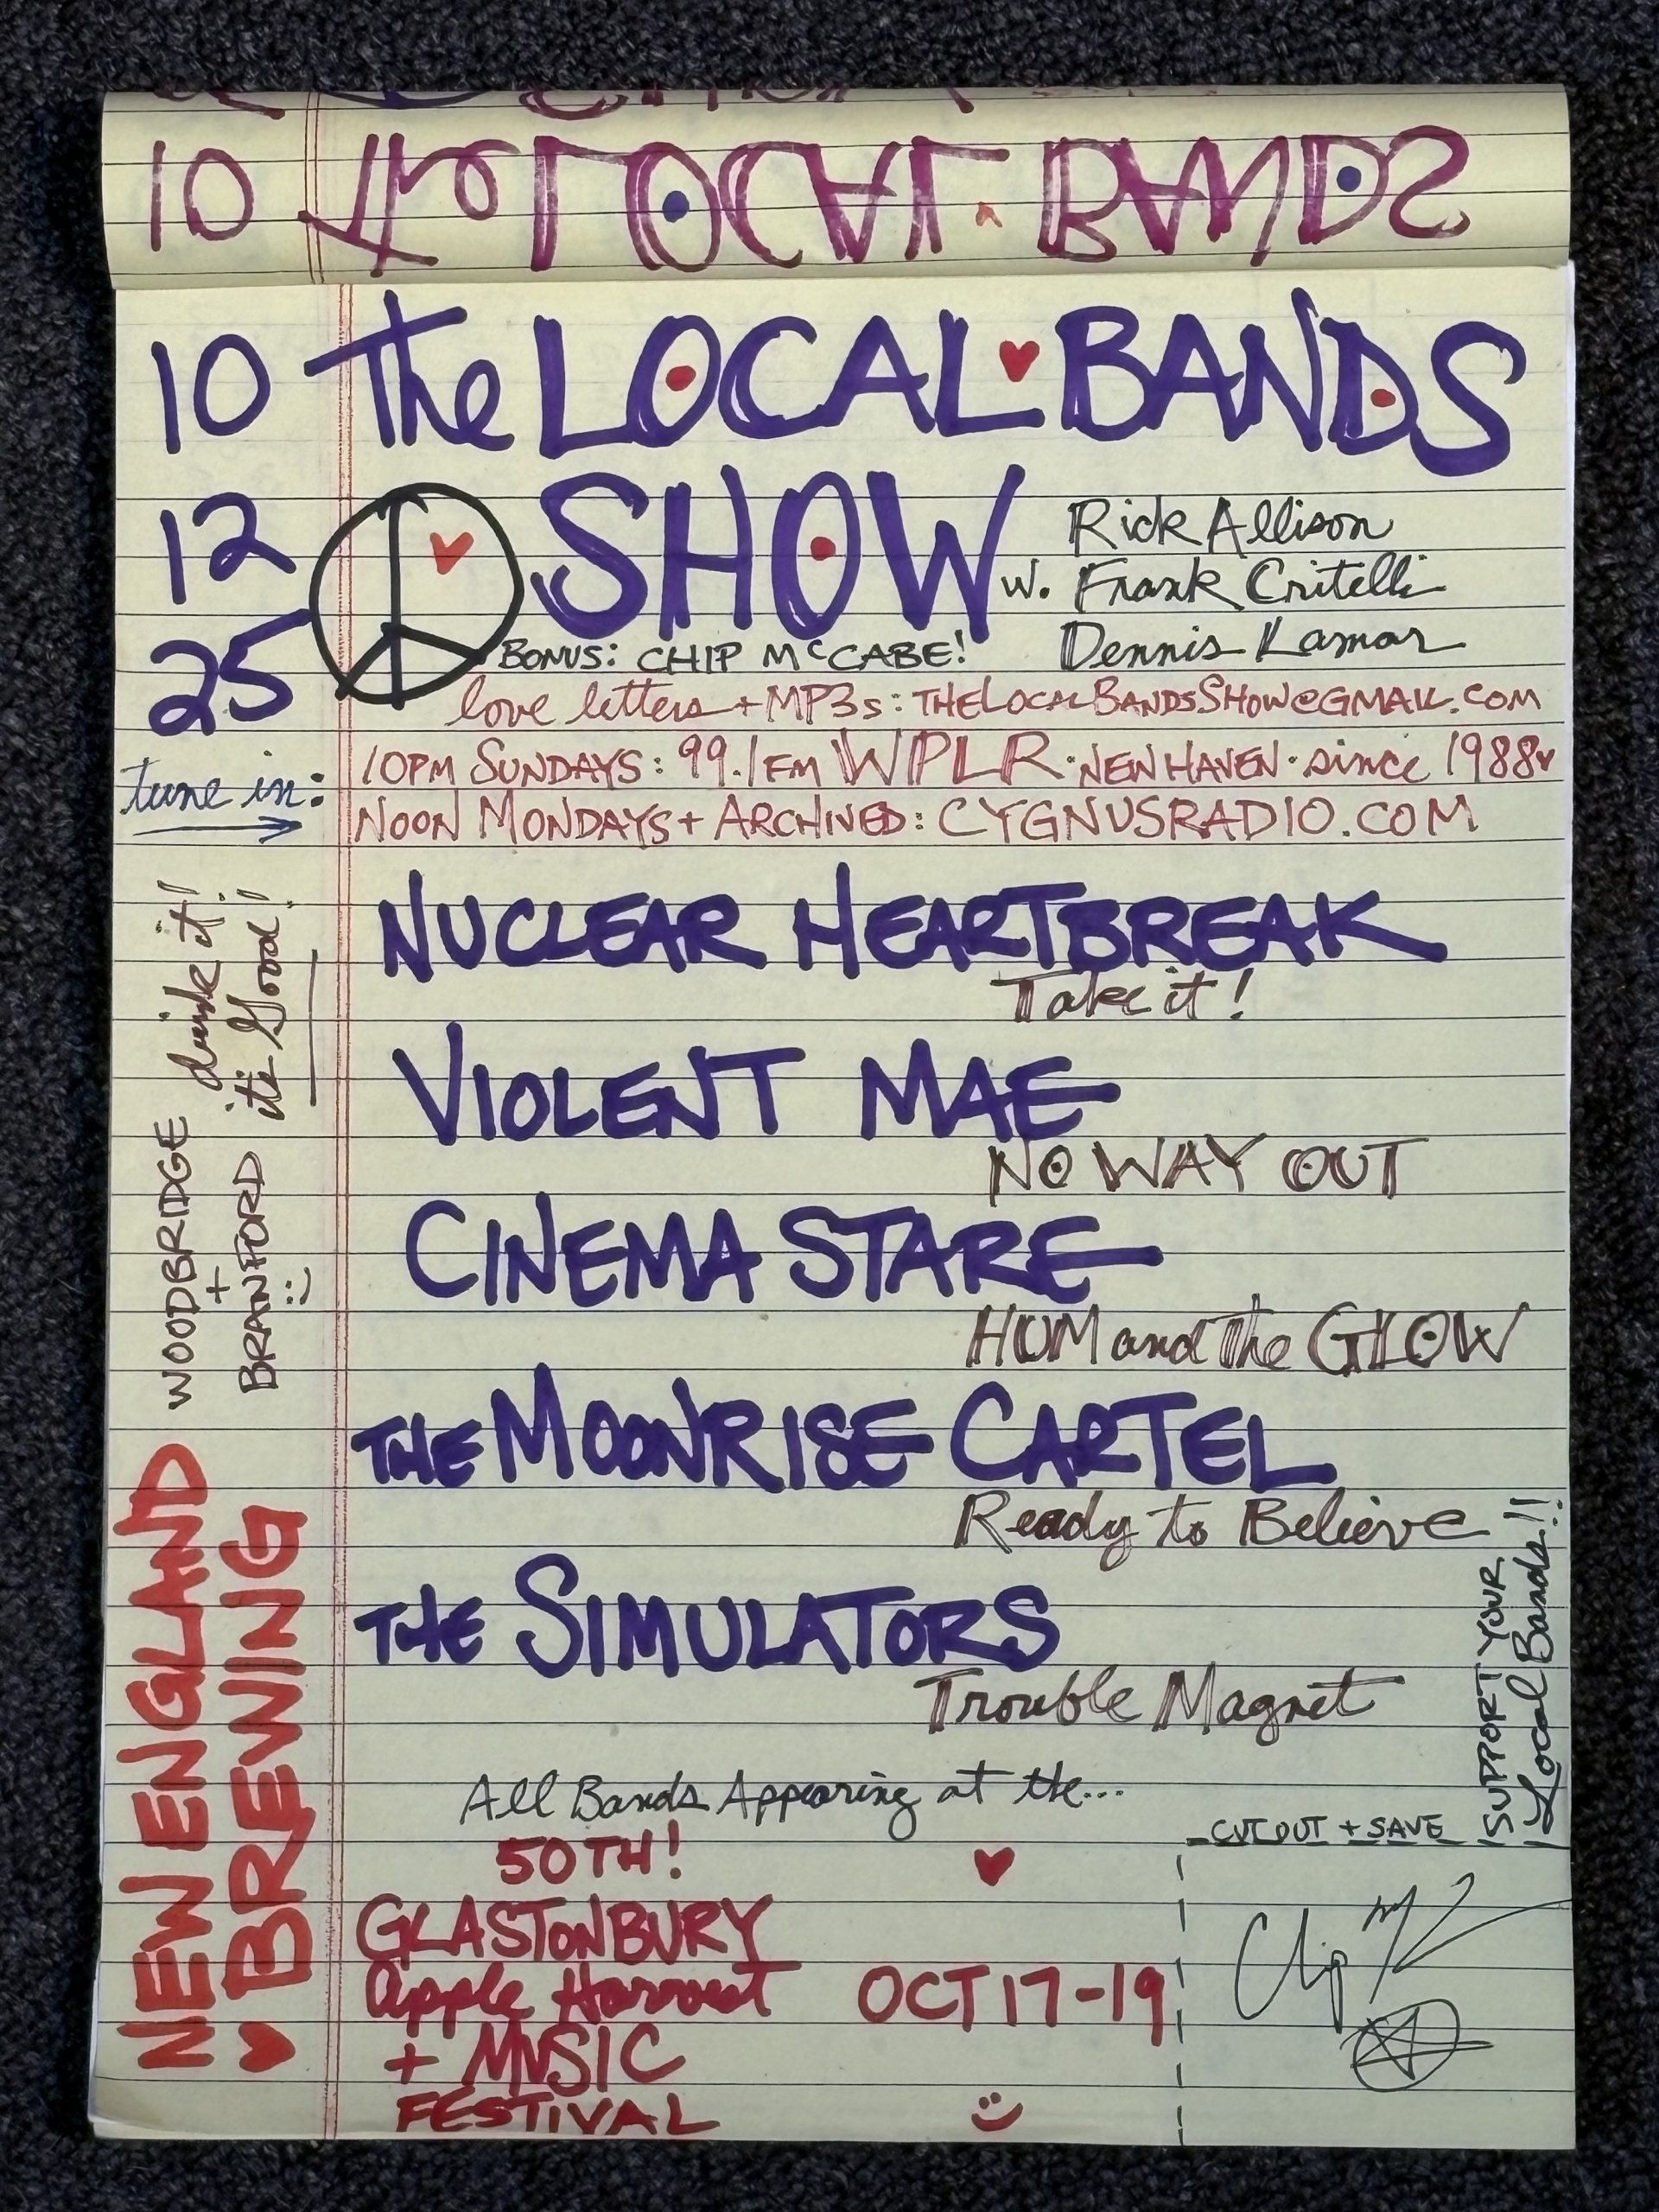 10 The LOCAL BANDS
10 The LOCAL BANDS
12 SHOW
25
w. Rick Allison
Frank Critelli
Dennis Lamar
BONUS: CHIP McCABE!
love letters + MP3s: THELOCALBANDSSHOW@GMAIL.COM
tune in:
10PM SUNDAYS: 99.1FM WPLR · NEW HAVEN · since 1988
NOON MONDAYS + ARCHIVED: CYGNUSRADIO.COM
NUCLEAR HEARTBREAK
Take it!
VIOLENT MAE
NO WAY OUT
CINEMA STARE
HUM and The GLOW
THE MOONRISE CARTEL
Ready to Believe
THE SIMULATORS
Trouble Magnet
All Bands Appearing at the...
50TH!
GLASTONBURY
Apple Harvest
+ MUSIC
FESTIVAL
OCT 17-19
NEW ENGLAND
BREWING
WOODBRIDGE
+
BRANFORD
:)
drink it!!
it's Good!!
SUPPORT YOUR
Local Bands!!
CUT OUT + SAVE
Chip